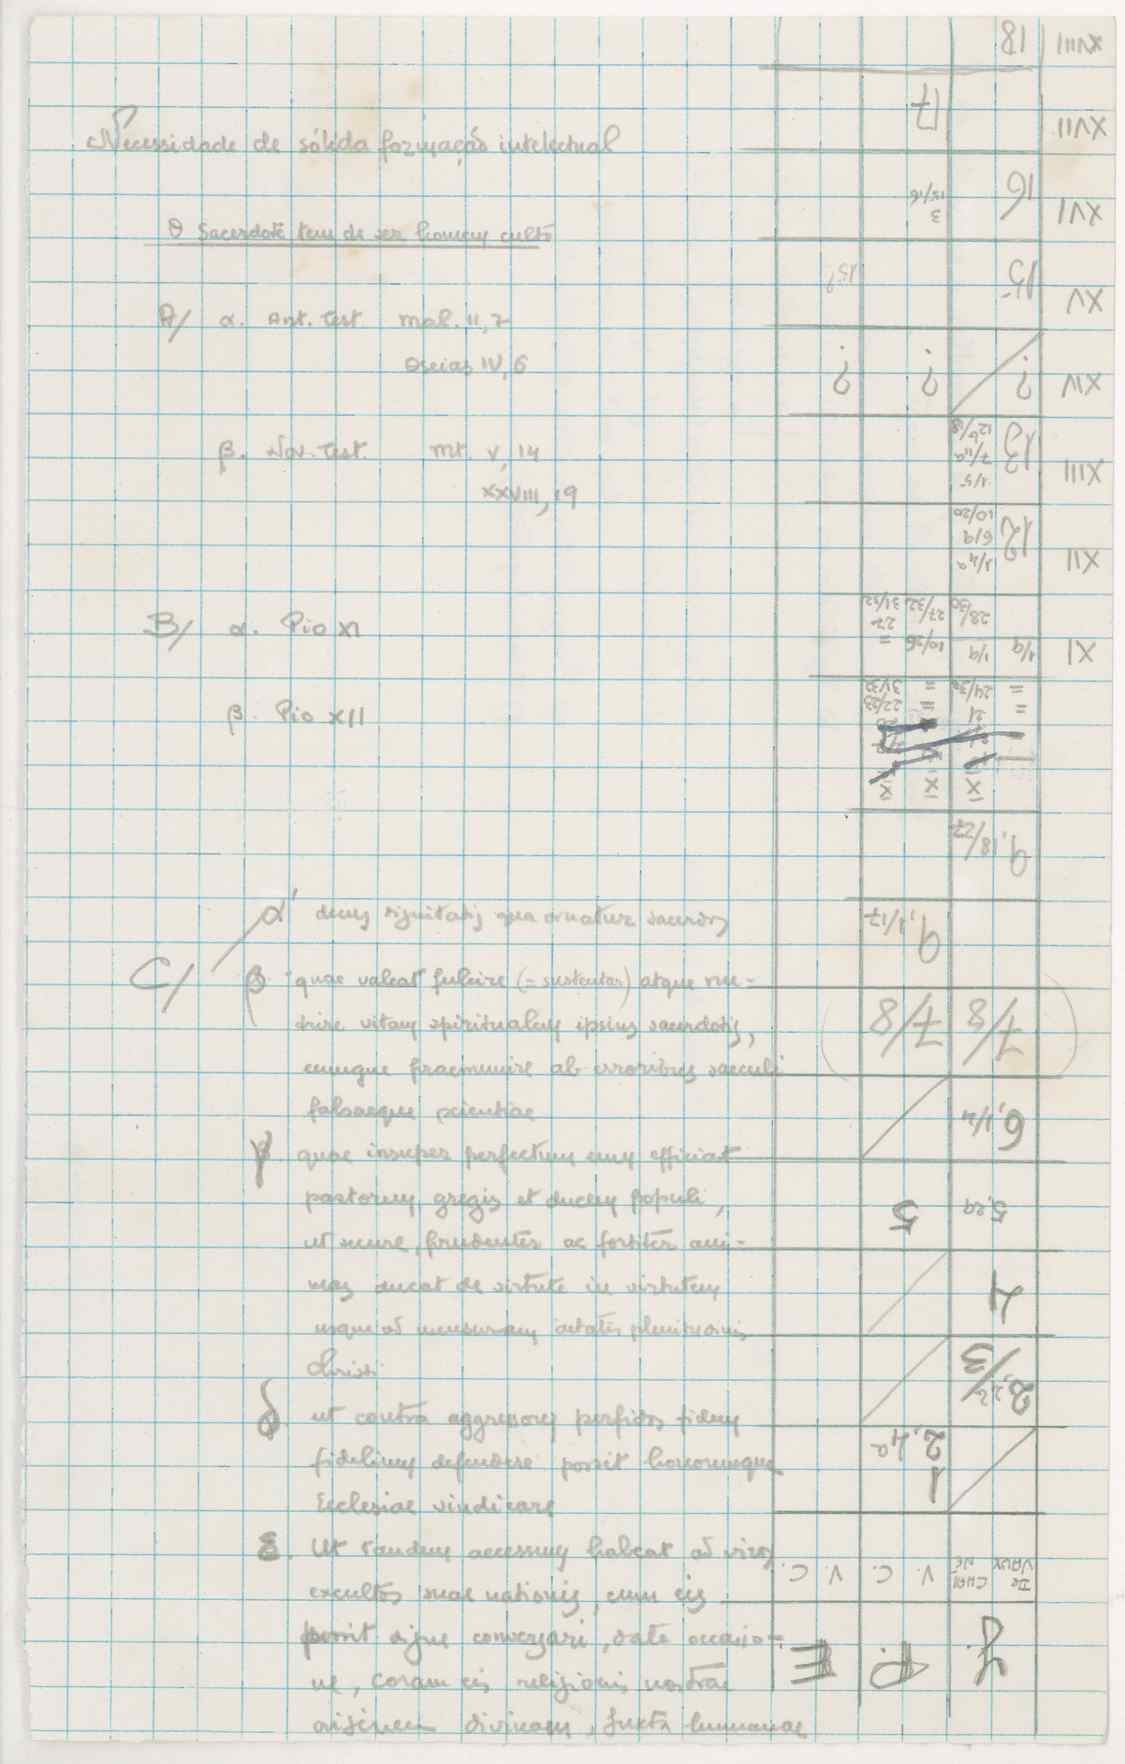 Necessidade de sólida formação intelectual
O Sacerdote tem de ser homem culto
A/ α. Ant. Test. Mal. II, 7
Oseias IV, 6
β. Nov. Test. Mt. V, 14
XXVIII, 19
B/ α. Pio XI
β. Pio XII
C/ α' decus dignitatis qua ornatur sacerdos
β quae valeat fulcire (= sustentar) atque nu-
trire vitam spiritualem ipsius sacerdotis,
eumque praemunire ab erroribus saeculi
falsaeque scientiae
γ. quae insuper perfectum eum efficiat
pastorem gregis et ducem populi,
ut secure, prudenter ac fortiter ani-
mas ducat de virtute in virtutem
usque ad mensuram aetatis plenitudinis
Christi
δ. ut contra aggressores perfidos fidem
fidelium defendere possit honoremque
Ecclesiae vindicare
ε. Ut tandem accessum habeat ad viros
excultos suae nationis, cum eis
possit digne conversari, data occasio-
ne, coram eis religionis nostrae
originem divinam, juxta humanae
J. P E
De Vaux V. C. V. C.
1
2, 4a
3
4
5 5, 29
6, 1/4
7/8 7/8
9, 1/17
9, 18/27
IX IX X
XI
XII 12
6/9
10/20
XIII 13
1/5
XIV ? ? ?
XV 15 15?
XVI 16 3
15/16
XVII 17
XVIII 18